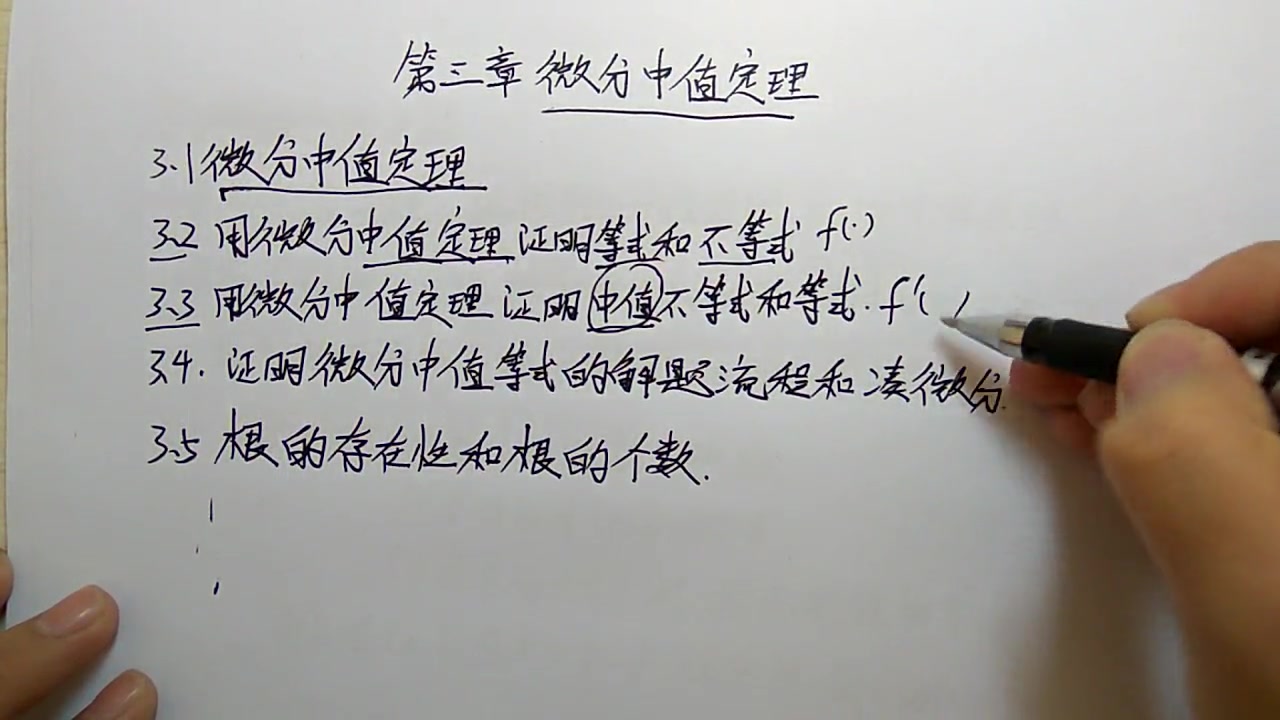 第三章 微分中值定理
3.1 微分中值定理
3.2 用微分中值定理证明等式和不等式 f(·)
3.3 用微分中值定理证明中值不等式和等式. f'( )
3.4. 证明微分中值等式的解题流程和凑微分.
3.5 根的存在性和根的个数.